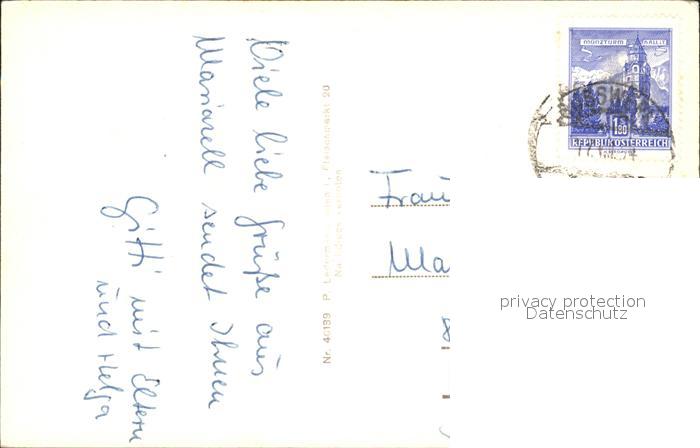 Viele liebe Grüße aus
Mariazell sendet Ihnen
Gitti mit Eltern
und Helga
Nr. 40189 P. Ledermann, Wien I., Fleischmarkt 20
Nachdruck verboten
Frau
Ma
MÜNZTURM HALL I.T.
S 1.80
REPUBLIK ÖSTERREICH
privacy protection
Datenschutz